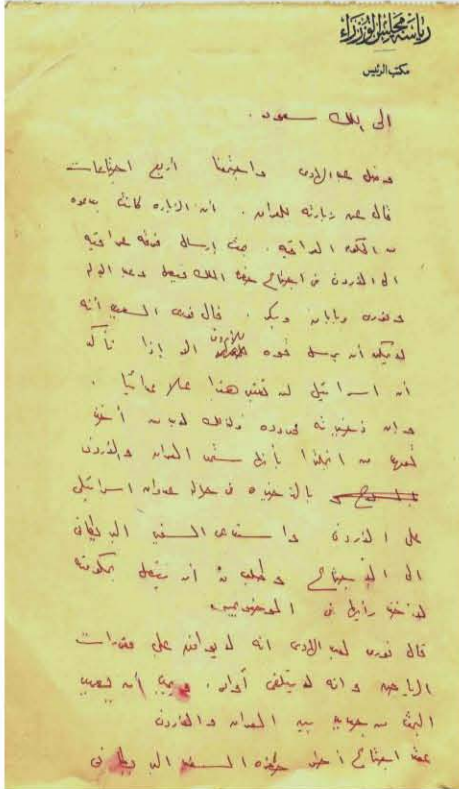 رياسة مجلس الوزراء
مكتب الرئيس
الى الملك سعود .
وصل عبد الهادى واجتمعنا أربع اجتماعات
قال عن زيارته للعراق . أن الزياره كانت بدعوه
من الحكومه العراقيه . بحث إرسال قوه عراقيه
الى الاردن فى اجتماع حضره الملك فيصل وعبد الاله
ونورى وبابان و . قال نورى السعيد أنه
لا يمكن أن يرسل قوه للأردن الا إذا تأكد
أن اسرائيل لن تعتبر هذا عملا عدائيا .
وان ذخيرته محدوده ولذلك لابد من أخذ
تعهد من انجلترا بأن العراق والاردن
بالذخيره فى حالة عدوان اسرائيلى
على الاردن واستدعى السفير البريطانى
الى الاجتماع وطلب منه أن يتصل بحكومته
لأخذ رأيها فى الموضوعين
قال نورى لعبد الهادى انه لا يوافق على مقررات
الرياض وانه لا يتلقى أوامر . ويجب أن يعيد
البحث من جديد بين العراق والاردن
عقد اجتماع آخر حضره السفير البريطانى